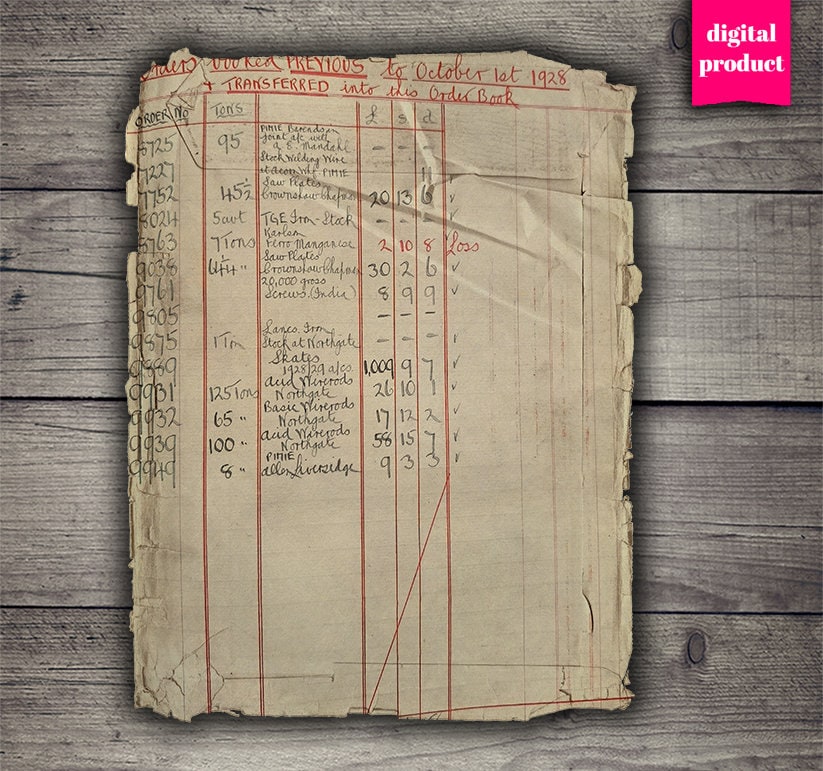 digital
product
Orders booked PREVIOUS to October 1st 1928
+ TRANSFERRED into this Order Book
ORDER No TONS £ s d
8725 95 PIMIE Barendsen
Joint a/c with
a. E. Mandahl - - -
7227 Stock Welding Wire
at acorn Whf. PIMIE 11
7752 45½ Saw Plates
Crownshaw Chapman 20 13 6 ✓
8024 5cwt TGE Iron-Stock - - ✓
8763 7 Tons
Ferro Manganese 2 10 8 Loss
9038 Saw Plates
Crownshaw Chapman 30 2 6 ✓
9761 20,000 gross
Screws. (India) 8 9 9 ✓
9805 - - -
9875 1 Ton Lancs. Iron
Stock at Northgate - - - ✓
9889 Skates
1928/29 a/cs. 1,009 9 7 ✓
9931 125 Tons acid Wirerods
Northgate 26 10 1 ✓
9932 65 " Basic Wirerods
Northgate 17 12 2 ✓
9939 100 " acid Wirerods
Northgate 58 15 7 ✓
9949 8 " PIMIE.
allen Liversidge 9 3 3 ✓